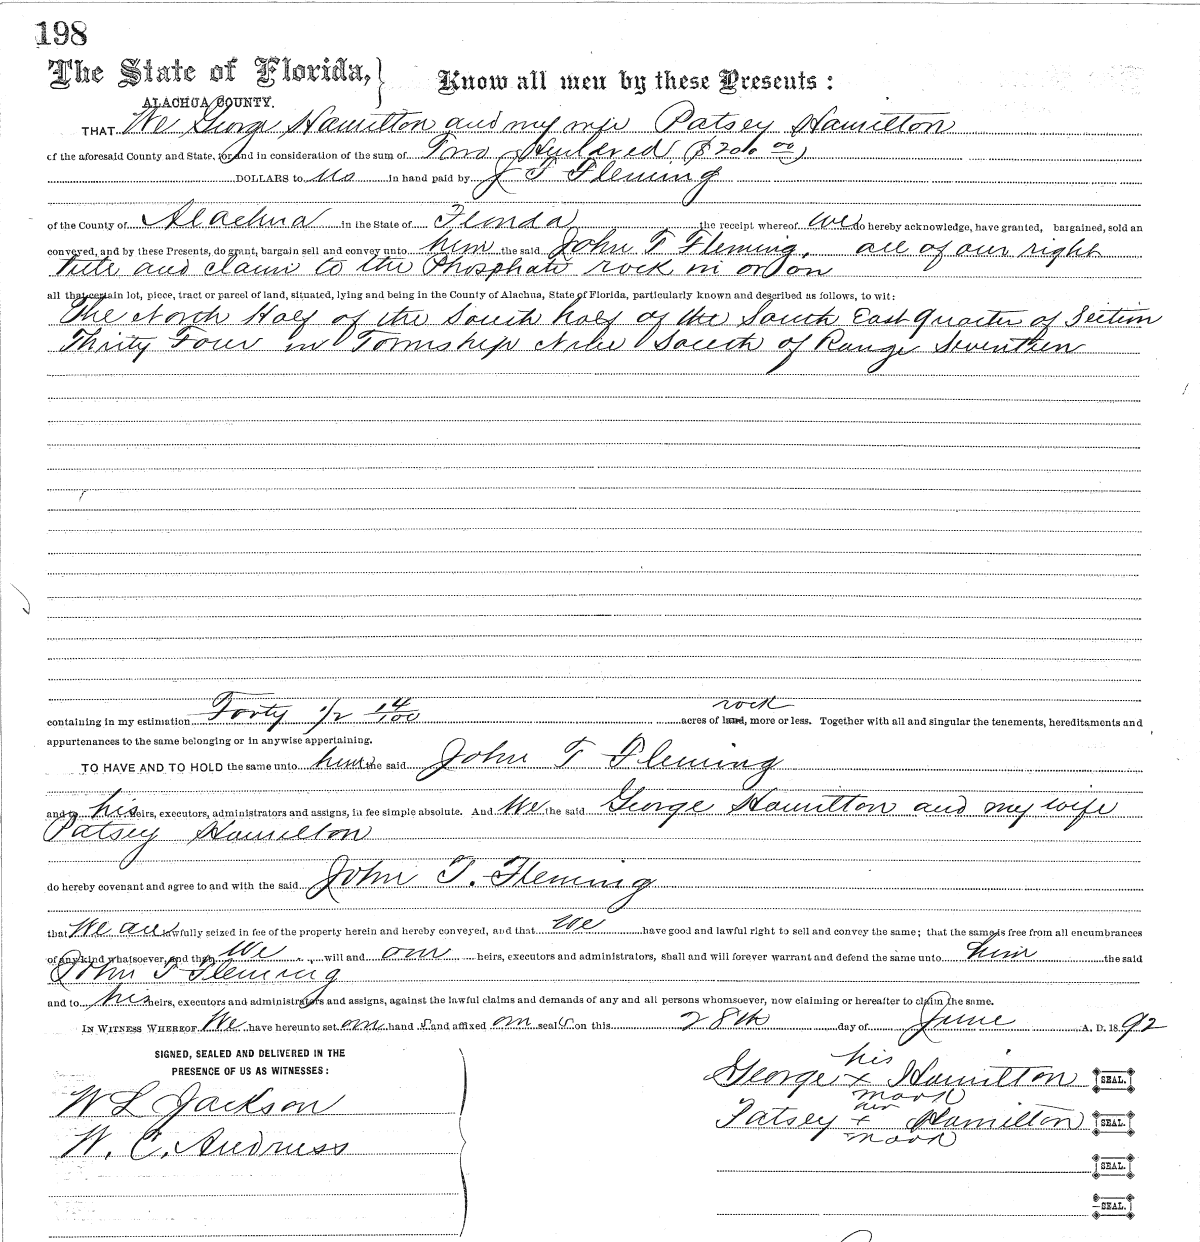 198
The State of Florida,
ALACHUA COUNTY.
Know all men by these Presents:
THAT We George Hamilton and my wife Patsey Hamilton
of the aforesaid County and State, for and in consideration of the sum of Two Hundred ($200 00)
DOLLARS to us in hand paid by J T Fleming
of the County of Alachua in the State of Florida the receipt whereof we do hereby acknowledge, have granted, bargained, sold an
conveyed, and by these Presents, do grant, bargain sell and convey unto him the said John T Fleming, all of our right
title and claim to the Phosphate rock in or on
all that certain lot, piece, tract or parcel of land, situated, lying and being in the County of Alachua, State of Florida, particularly known and described as follows, to wit:
The North Half of the South half of the South East quarter of Section
Thirty Four in Township Nine South of Range Seventeen
containing in my estimation Forty 1/2 14/100 acres of land, rock more or less. Together with all and singular the tenements, hereditaments and
appurtenances to the same belonging or in anywise appertaining.
TO HAVE AND TO HOLD the same unto him the said John T Fleming
and to his heirs, executors, administrators and assigns, in fee simple absolute. And We the said George Hamilton and my wife
Patsey Hamilton
do hereby covenant and agree to and with the said John T. Fleming
that We are lawfully seized in fee of the property herein and hereby conveyed, and that we have good and lawful right to sell and convey the same; that the same is free from all encumbrances
of any kind whatsoever, and that We will and our heirs, executors and administrators, shall and will forever warrant and defend the same unto him the said
John T Fleming
and to his heirs, executors and administrators and assigns, against the lawful claims and demands of any and all persons whomsoever, now claiming or hereafter to claim the same.
IN WITNESS WHEREOF We have hereunto set our hand s and affixed our seal s on this 28th day of June A. D. 1892
SIGNED, SEALED AND DELIVERED IN THE
PRESENCE OF US AS WITNESSES:
W L Jackson
W. C. Andruss
his
George x Hamilton SEAL.
mark
her
Patsey x Hamilton SEAL.
mark
SEAL.
SEAL.